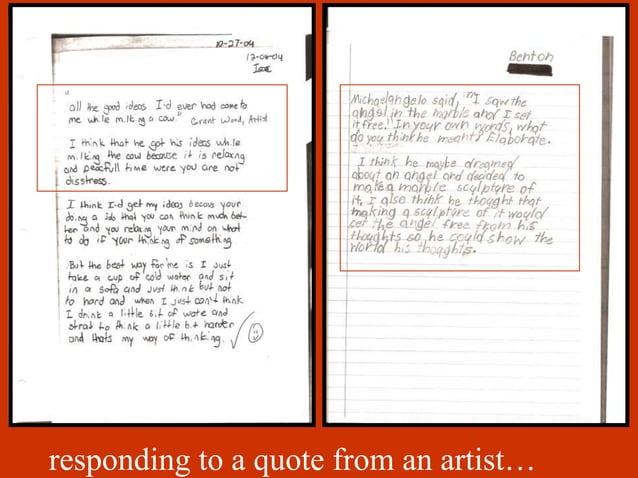 10-27-04
12-04-04
"
all the good ideas I-d ever had came to
me while milking a cow." Grant Wood, Artist
I think that he got his ideas while
milking the cow because it is relaxing
and peacfull time were you are not
disstress.
I think I-d get my ideas becous your
doing a job that you can think much bet-
ter and you relaxing your mind on what
to do if your thinking of something
But the best way for me is I just
take a cup of cold water and sit
in a sofa and just think but not
to hard and when I just can't think
I drink a little bit of wate and
strat to think a little bit harder
and thats my way of thinking.
Benton
Michaelangelo said, "I saw the
angel in the marble and I set
it free." In your own words, what
do you think he meant? Elaborate.
I think he maybe dreamed
about an angel and decided to
make a marble sculpture of
it. I also think he thought that
making a sculpture of it would
set the angel free from his
thoughts so he could show the
world his thoughts.
responding to a quote from an artist…